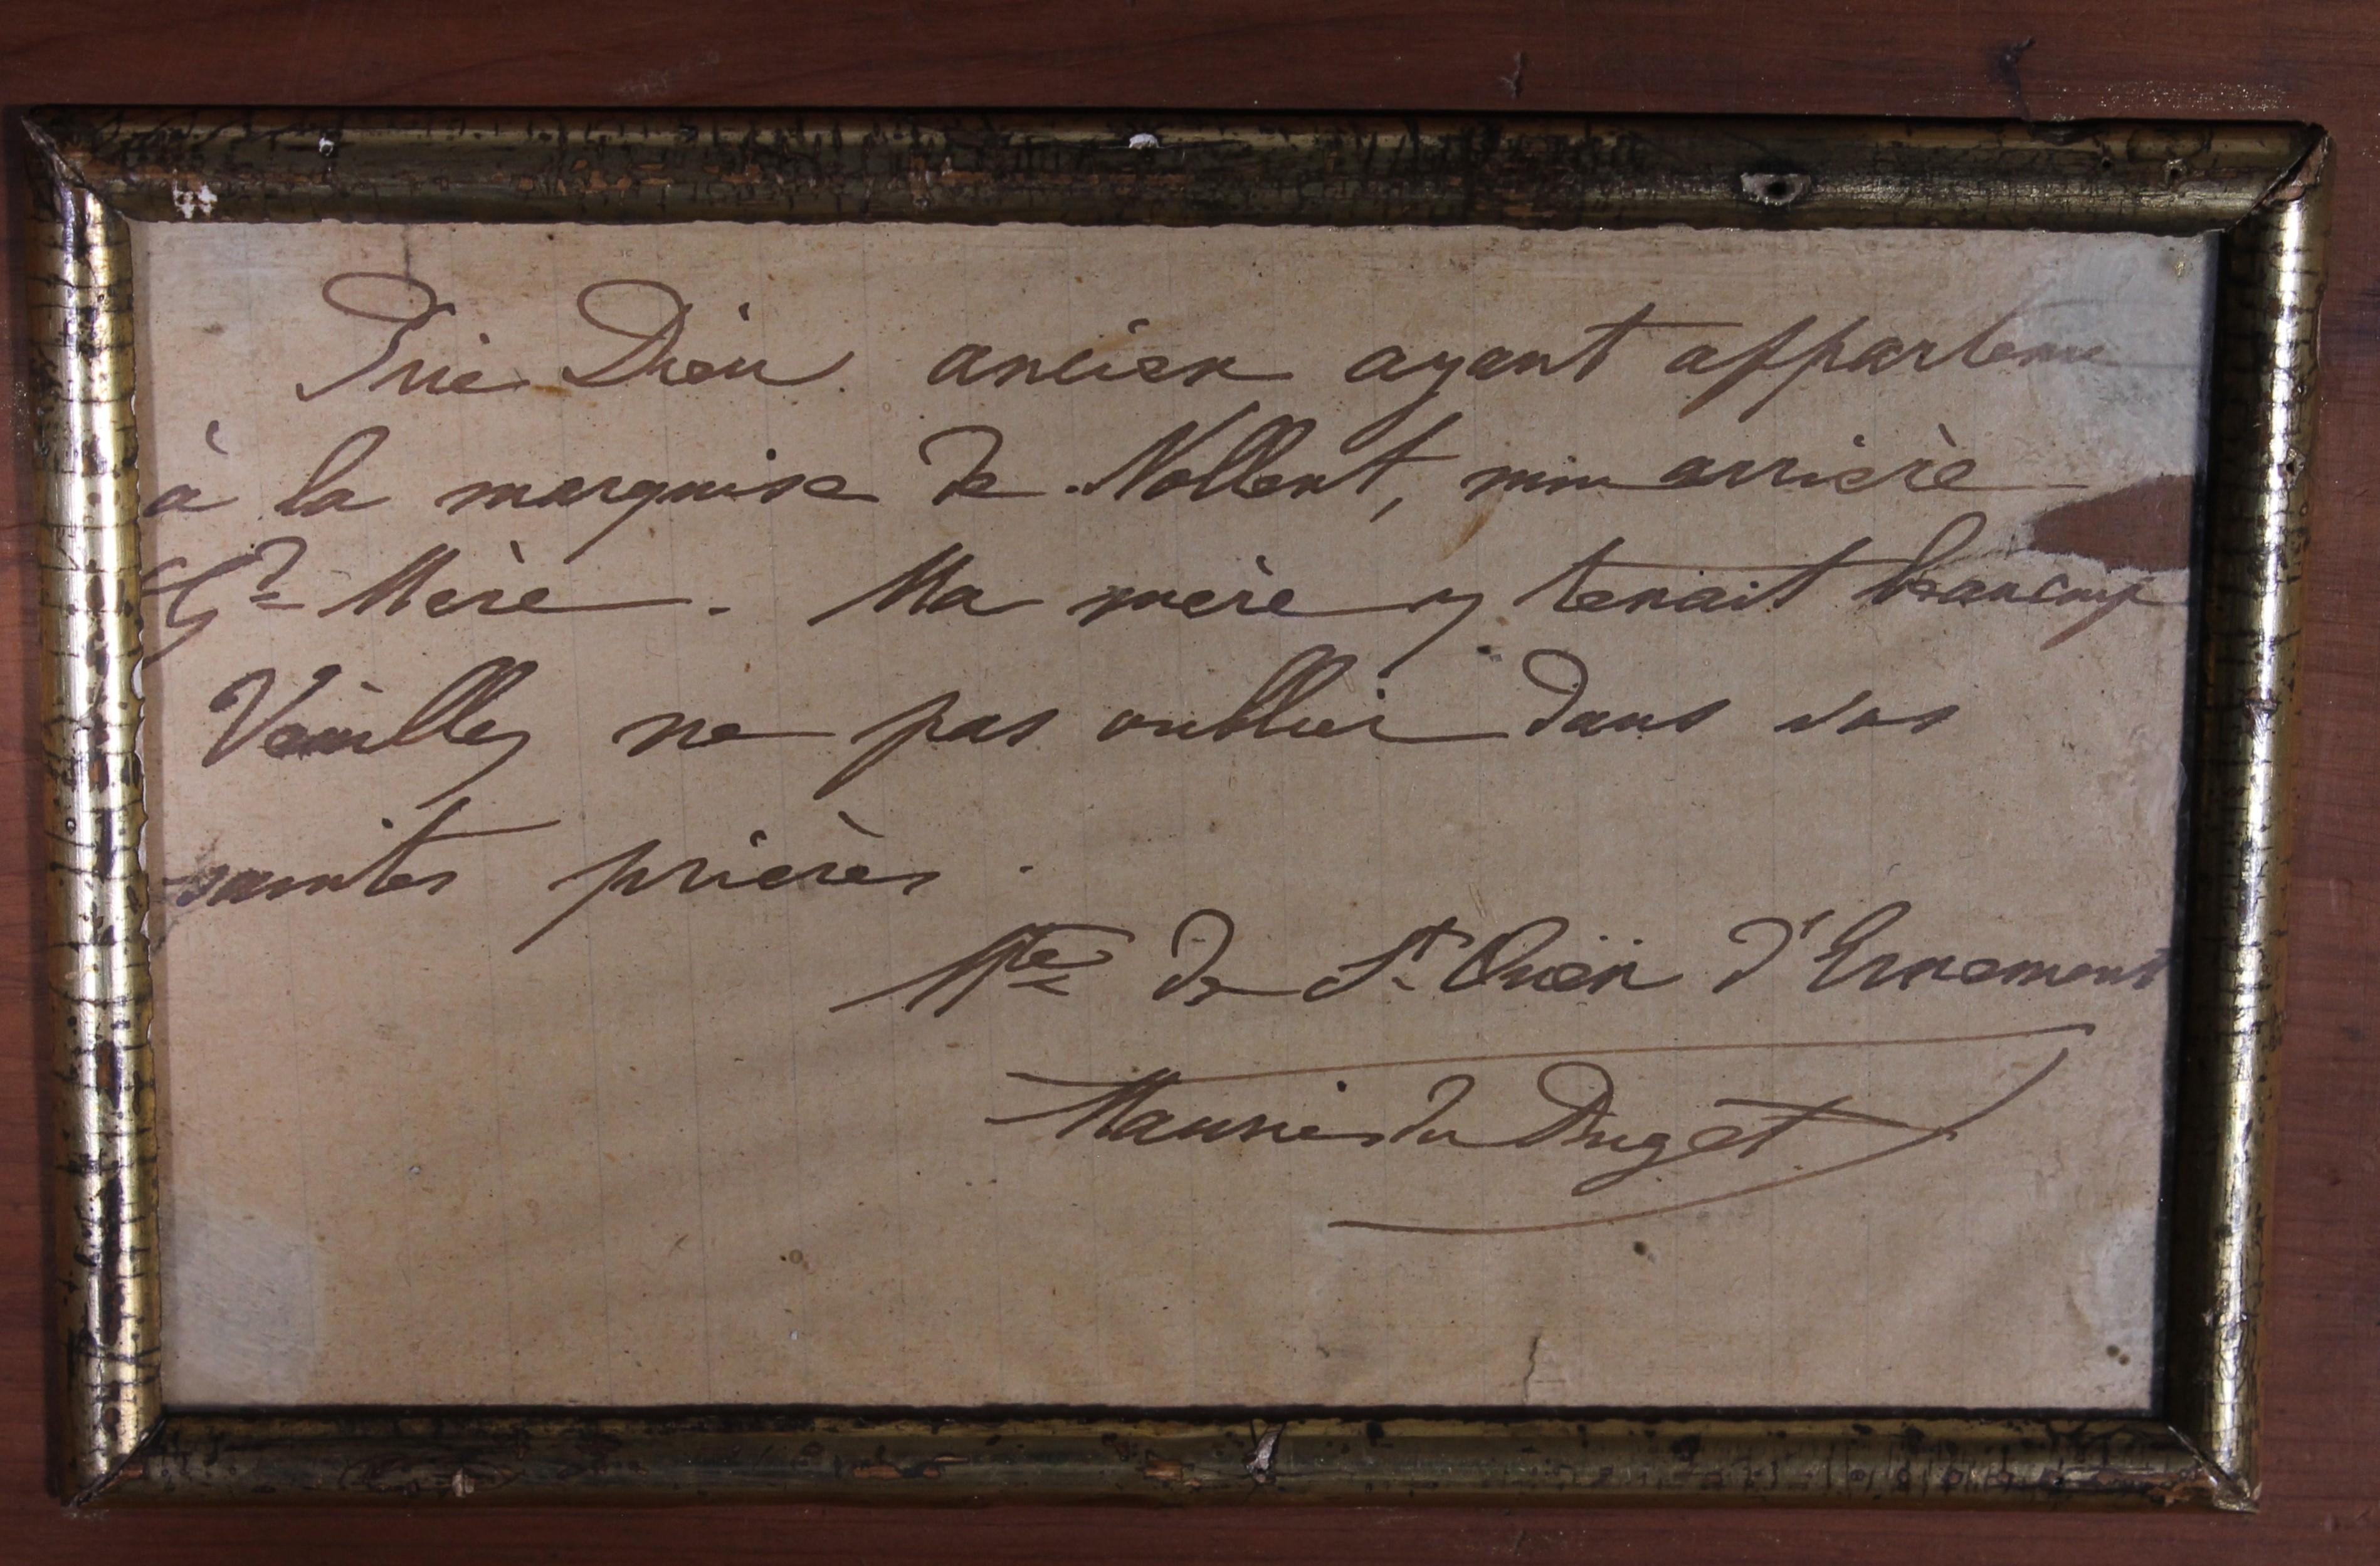 Prie Dieu ancien ayant appartenu
à la marquise de Nollent, mon arrière
Gde Mère. Ma mère y tenait beaucoup
Veuillez ne pas oublier dans vos
saintes prières.
Mise de St Ouen d'Ernemont
du